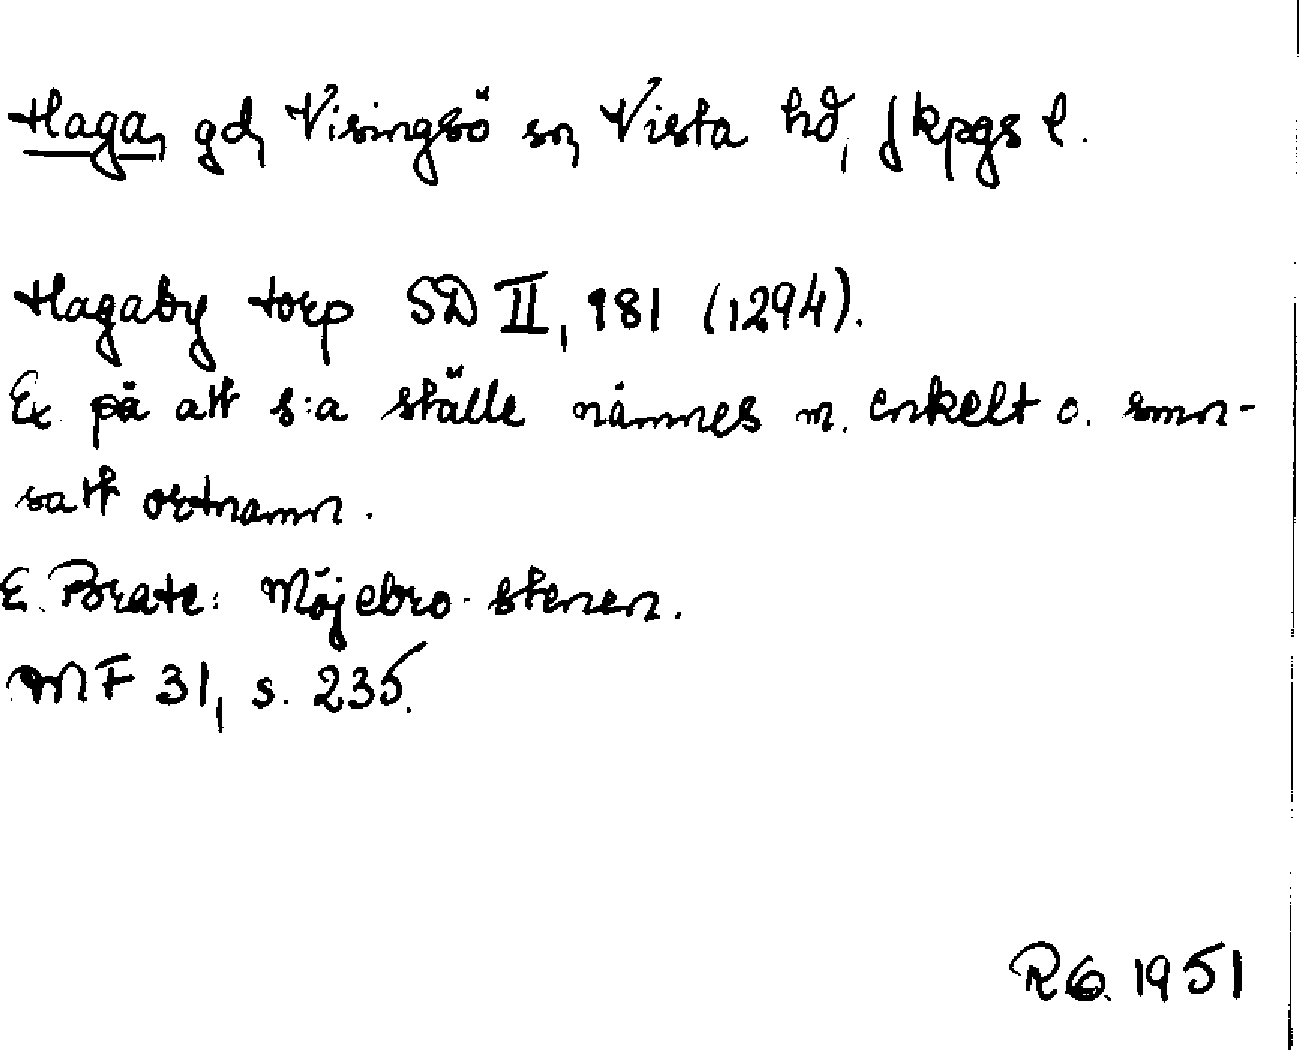 Haga, gd, Visingsö sn, Vista hd, Jkpgs l.
Hagaby torp SD II, 181 (1294).
Ex. på att s:a ställe nämnes m. enkelt o. smn-
satt ortnamn.
E. Brate: Möjebro-stenen.
MF 31, s. 235.
RG. 1951